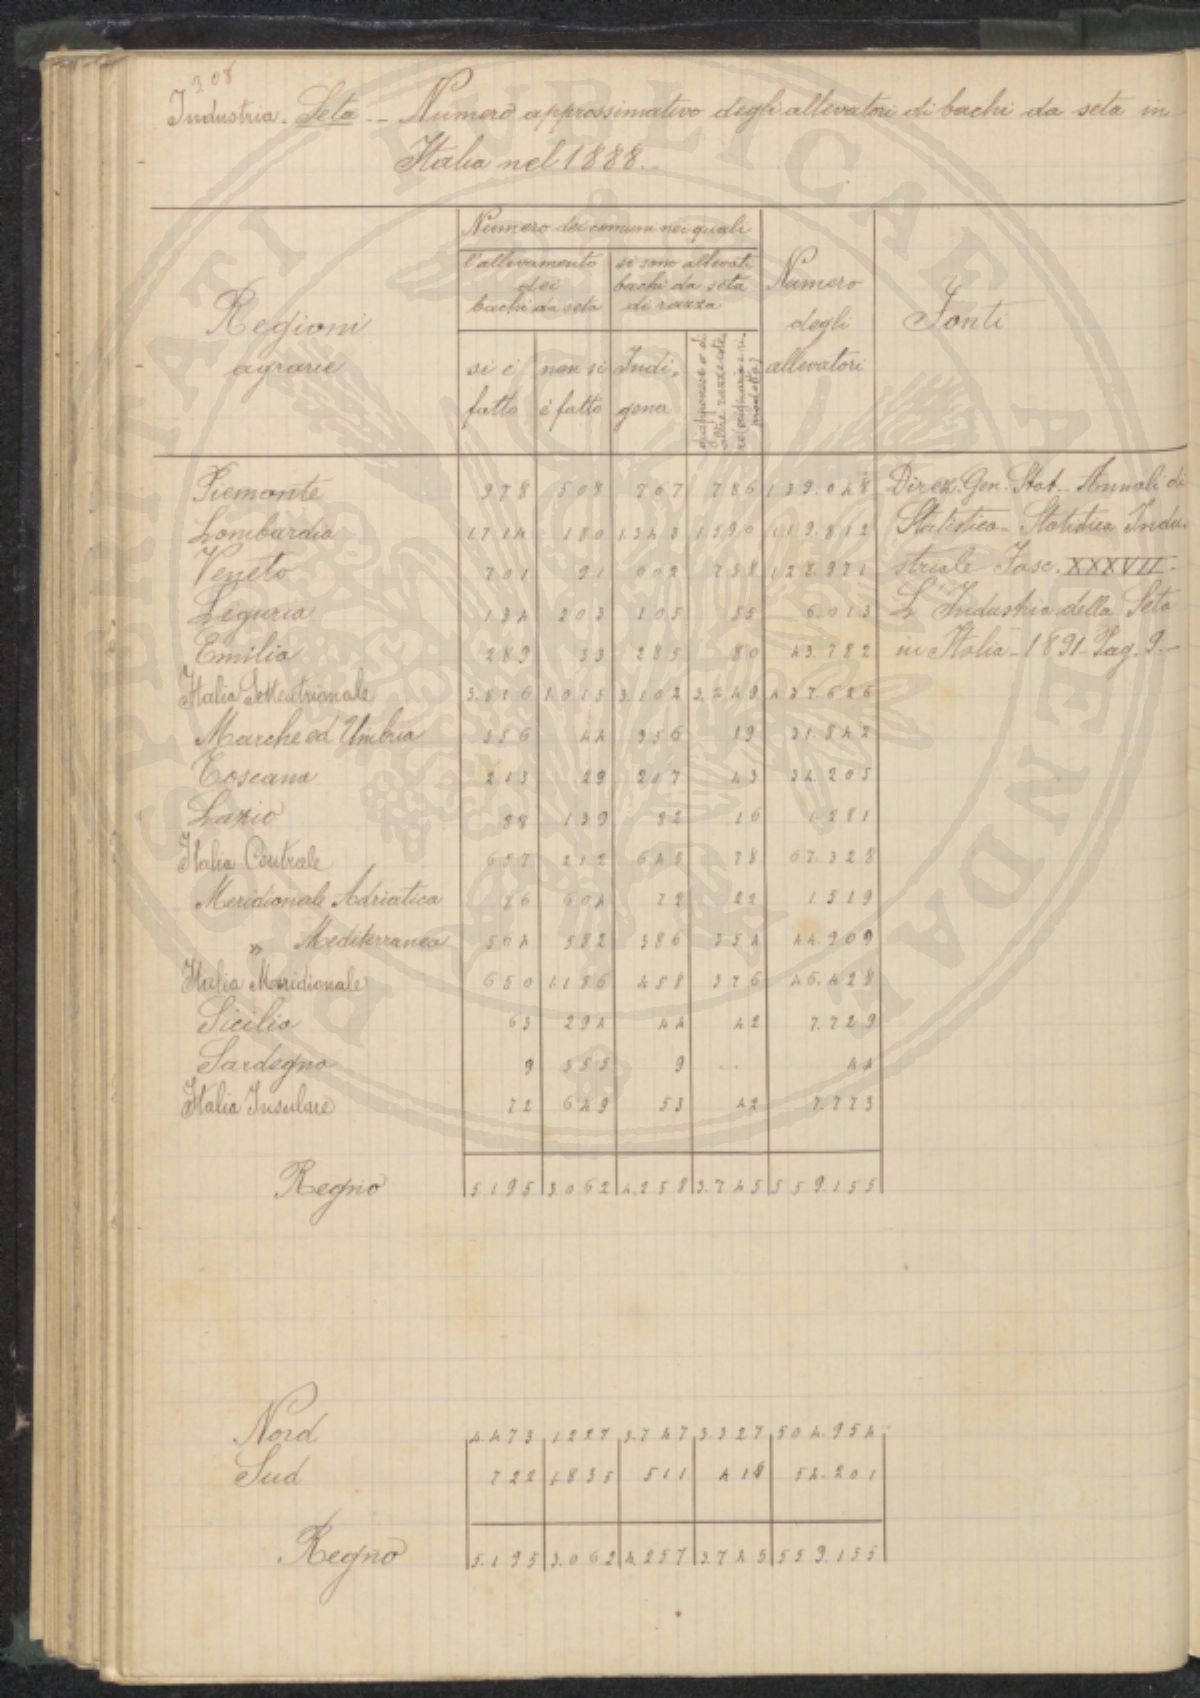 308
Industria. Seta -- Numero approssimativo degli allevatori di bachi da seta in
Italia nel 1888.
Numero dei comuni nei quali
l'allevamento dei bachi da seta
si sono allevati bachi da seta di razza
Regioni agrarie
si è fatto
non si è fatto
Indigena
giapponese o di altre razze este
Numero degli allevatori
Fonti
Piemonte 978 508 767 786 139.048
Lombardia 1714 180 1343 1590 119.812
Veneto 701 91 602 738 128.971
Liguria 134 203 105 55 6.013
Emilia 289 33 285 80 43.782
Italia Settentrionale 3.816 1.015 3.102 3.249 437.626
Marche ed Umbria 356 44 356 19 31.842
Toscana 213 29 207 43 34.205
Lazio 88 139 82 16 1.281
Italia Centrale 657 212 645 78 67.328
Meridionale Adriatica 86 604 72 22 1.519
" Mediterranea 564 582 386 354 44.909
Italia Meridionale 650 1.186 458 376 46.428
Sicilia 63 294 44 42 7.729
Sardegna 9 555 9 .. 44
Italia Insulare 72 649 53 42 7.773
Regno 5195 3.062 4.258 3.745 559.155
Direz. Gen. Stat. - Annali di
Statistica - Statistica Indu-
striale Fasc. XXXVII -
L'Industria della Seta
in Italia - 1891 - Pag. 9. -
Nord 4473 1227 3.747 3.327 504.954
Sud 722 1835 511 418 54.201
Regno 5.195 3.062 4.257 3.745 559.155
PUBLICAE